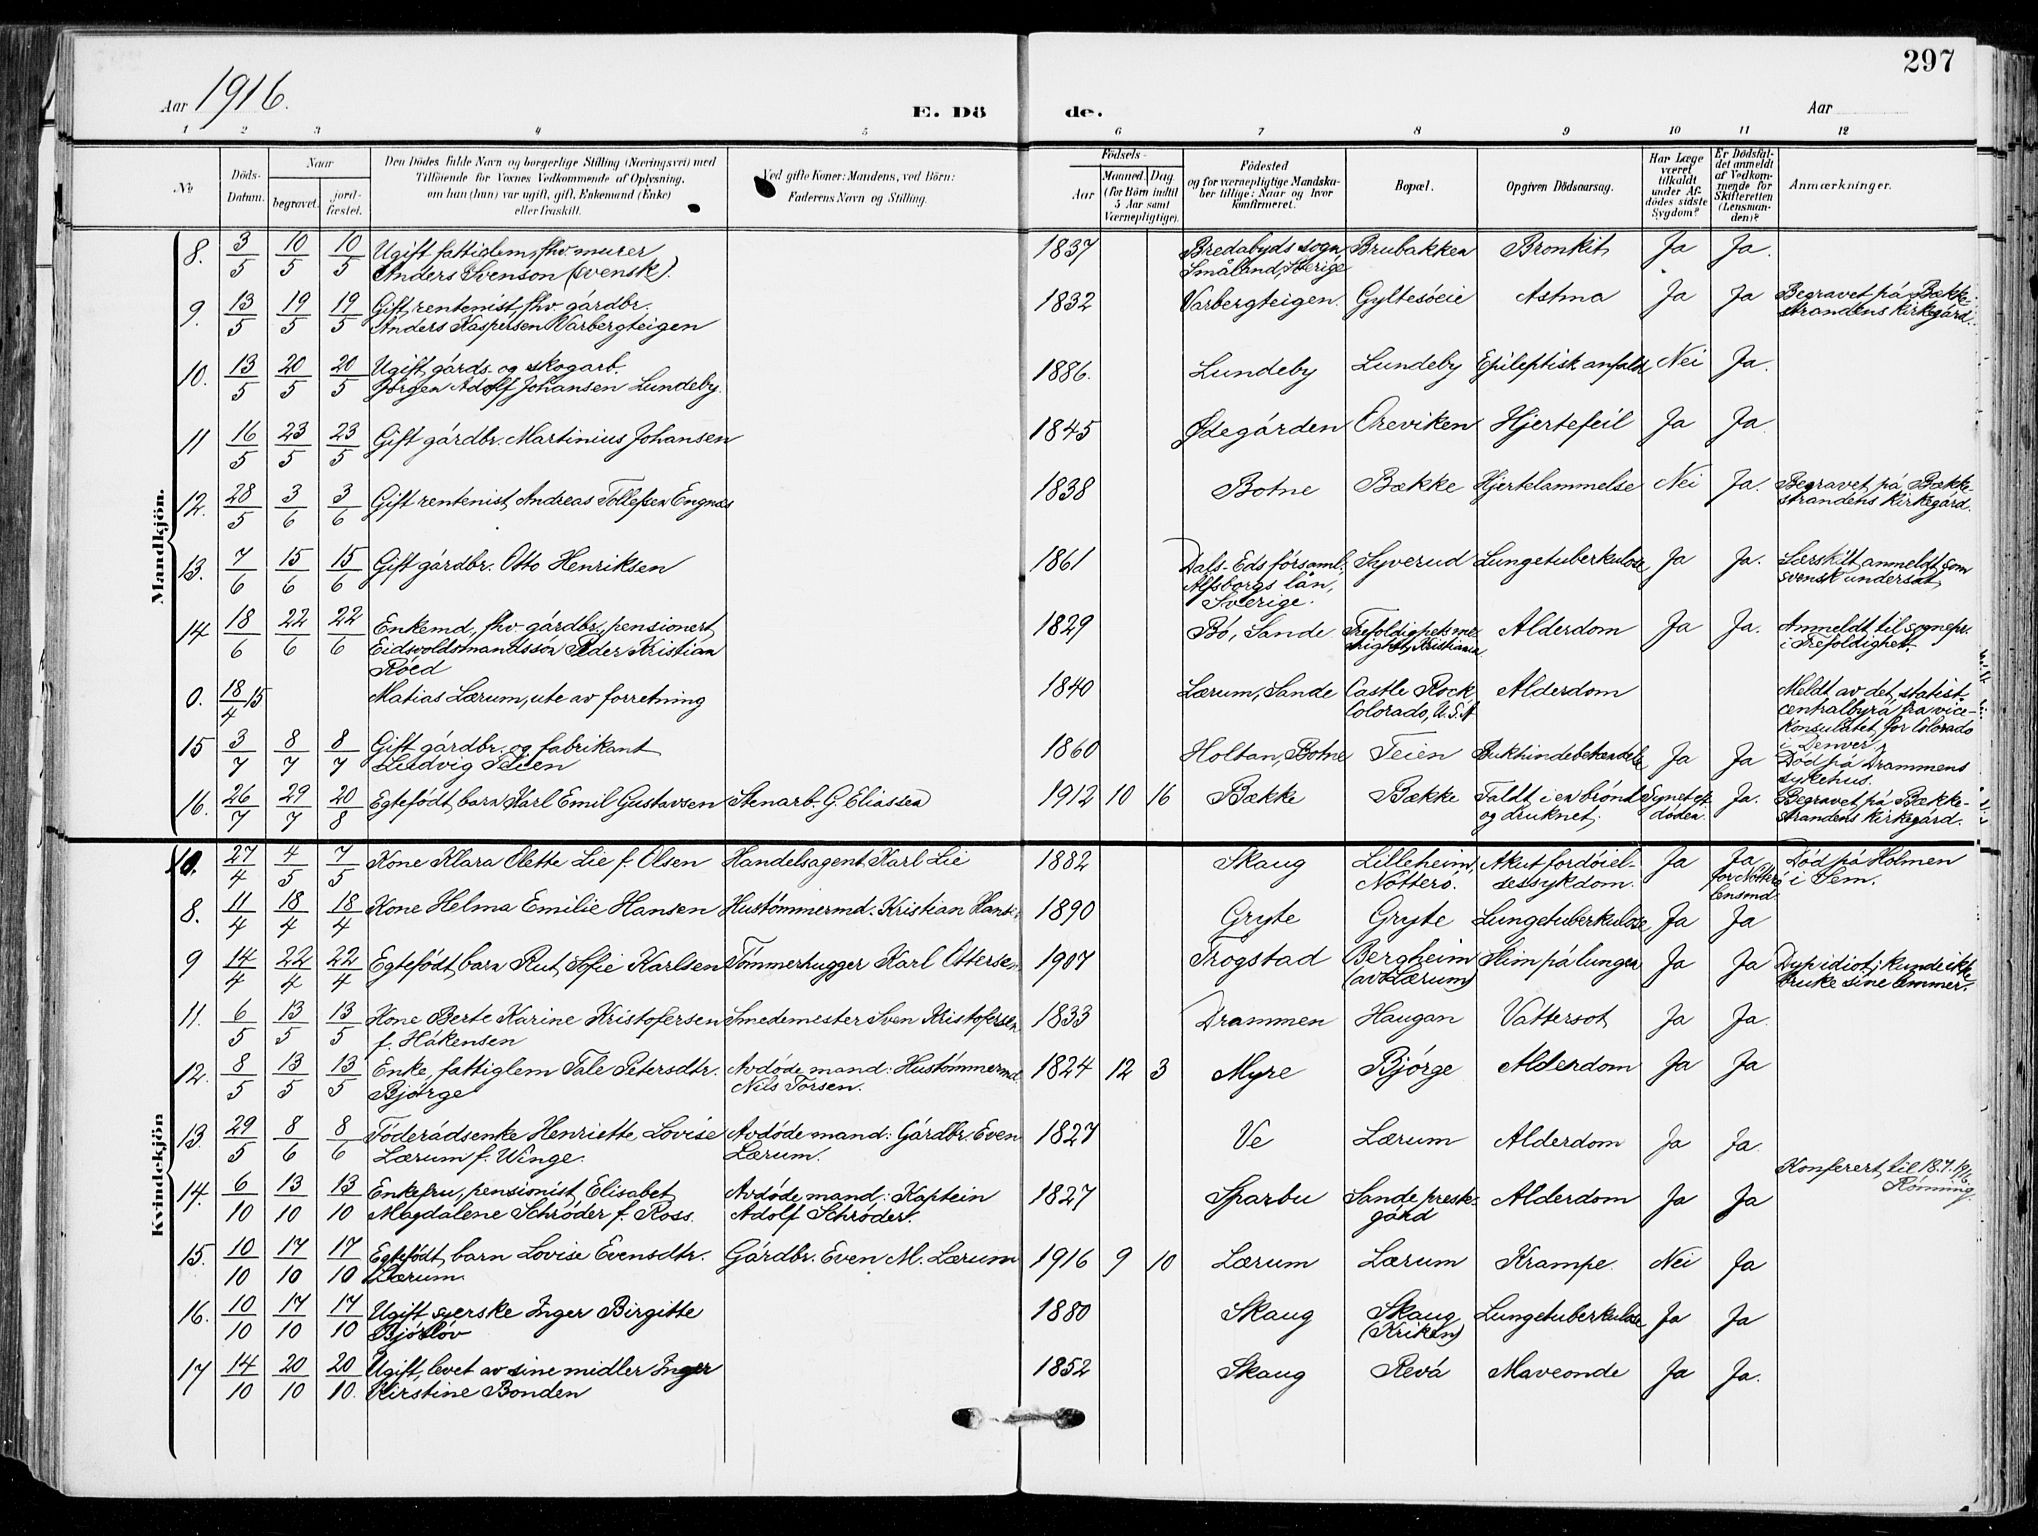 297
Aar 1916.
E. Dö de.
Aar
1 2 3 4 5 6 7 8 9 10 11 12
No
Döds-Datum.
Naar
begravet.
jord-fæstet.
Den Dödes fulde Navn og borgerlige Stilling (Næringsvei) med
Tilföiende for Voxnes Vedkommende af Oplysning,
om han (hun) var ugift, gift, Enkemand (Enke)
eller fraskilt.
Ved gifte Koner: Mandens, ved Börn:
Faderens Navn og Stilling.
Födsels-
Aar
Maaned. Dag.
(for Börn indtil
5 Aar samt
Værnepligtige).
Födested
og for værnepligtige Mandska-
ber tillige: Naar og hvor
konfirmeret.
Bopæl.
Opgiven Dödsaarsag.
Har Læge
været
tilkaldt
under Af-
dödes sidste
Sygdom?
Er Dödsfal-
det anmeldt
af Vedkom-
mende for
Skifteretten
(Lensman-
den)?
Anmærkninger.
Mandkjön.
8. 3/5 10/5 10/5 Ugift fattiglem, fhv. murer 1837 Bredabyds sogn, Brubakken Bronkit Ja Ja.
Anders Svenson (svensk). Småland, Sverige
9. 13/5 19/5 19/5 Gift rentenist, fhv. gårdbr. 1832 Varbergteigen. Gyltesøeie Astma Ja Ja Begravet på Bække-
Anders Kaspersen Varbergteigen strandens kirkegård.
10. 13/5 20/5 20/5 Ugift gårds- og skogarb. 1886. Lundeby Lundeby Epileptisk anfald Nei Ja.
Jørgen Adolf Johansen Lundeby.
11 16/5 23/5 23/5 Gift gårdbr. Martinius Johansen 1845 Ødegården Oreviken Hjertefeil Ja Ja.
12. 28/5 3/6 3/6 Gift rentenist Andreas Tollefsen Engnæs 1838 Botne Bække Hjertelammelse Nei Ja. Begravet på Bække-
strandens kirkegård.
13. 7/6 15/6 15/6 Gift gårdbr. Otto Henriksen 1861 Dals-Eds församl. Syverud Lungetuberkulose Ja Ja. Særskilt anmeldt som
Alfsborgs län, svensk undersåt.
Sverige.
14 18/6 22/6 22/6 Enkemd., fhv. gårdbr., pensionert 1829 Bö, Sande Trefoldighets me- Alderdom Ja Ja. Anmeldt til sognepr.
Eidsvoldsmandssön Peder Kristian nighet, Kristiania i Trefoldighet.
Röed
0. 18/4 15 Matias Lærum, ute av forretning 1840 Lærum, Sande Castle Rock Alderdom Meldt av det statist.
Colorado, U.S.A centralbyrå fra vice-
konsulatet for Colorado
i Denver.
15 3/7 8/7 8/7 Gift gårdbr. og fabrikant 1860 Holtan, Botne Teien Bukhindebetændelse Ja Ja Död på Drammens
Ludvig Teien sykehus.
16. 26/7 29/7 20/8 Egtefödt barn Karl Emil Gustavsen Stenarb. G. Eliassen 1912 10 16 Bække Bække Faldt i en brönd Synet ef. Ja. Begravet på Bække-
og druknet. döden. strandens kirkegård.
Kvindekjön
10. 27/4 4/5 7/5 Kone Klara Olette Lie f. Olsen Handelsagent Karl Lie 1882 Skaug Lilleheim, Akut fordöiel- Ja Ja Död på Holmen
Nötterö. sessykdom. for Nötterö i Sem.
lensmd.
8. 11/4 18/4 18/4 Kone Helma Emilie Hansen Hustömmermd. Kristian Hans. 1890 Gryte Gryte Lungetuberkulose Ja Ja
9 14/4 22/4 22/4 Egtefödt barn Rut Sofie Karlsen Tömmerhugger Karl Ottersen 1907 Trogstad Bergheim Slim på lungen Ja Ja Dyp idiot; kunde ikke
(av Lærum) bruke sine lemmer.
11. 6/5 13/5 13/5 Kone Berte Karine Kristofersen Smedemester Sven Kristofersen 1833 Drammen Haugan Vattersot Ja Ja.
f. Håkensen
12. 8/5 13/5 13/5 Enke, fattiglem Tale Petersdtr. Avdöde mand: Hustömmermd. 1824 12 3 Myre Bjørge Alderdom Ja Ja
Bjørge Nils Torsen.
13. 29/5 8/6 8/6 Föderådsenke Henriette Lovise Avdöde mand: Gårdbr. Even 1827 Ve Lærum Alderdom Ja Ja.
Lærum f. Winge. Lærum.
Konferert til 18.7.1916.
Rönning.
14. 6/10 13/10 13/10 Enkefru, pensionist Elisabet Avdöde mand: Kaptein 1827 Sparbu Sande preste- Alderdom Ja Ja
Magdalene Schröder f. Ross Adolf Schröder. gård
15. 10/10 17/10 17/10 Egtefödt barn Lovise Evensdtr. Gårdbr. Even M. Lærum 1916 9 10 Lærum Lærum Krampe. Nei Ja
Lærum
16. 10/10 17/10 17/10 Ugift syerske Inger Birgitte 1880 Skaug Skaug Lungetuberkulose Ja Ja
(Kriken)
17 14/10 20/10 20/10. Ugift, levet av sine midler Inger 1852 Skaug Revå Maveonde Ja Ja.
Kirstine Bonden